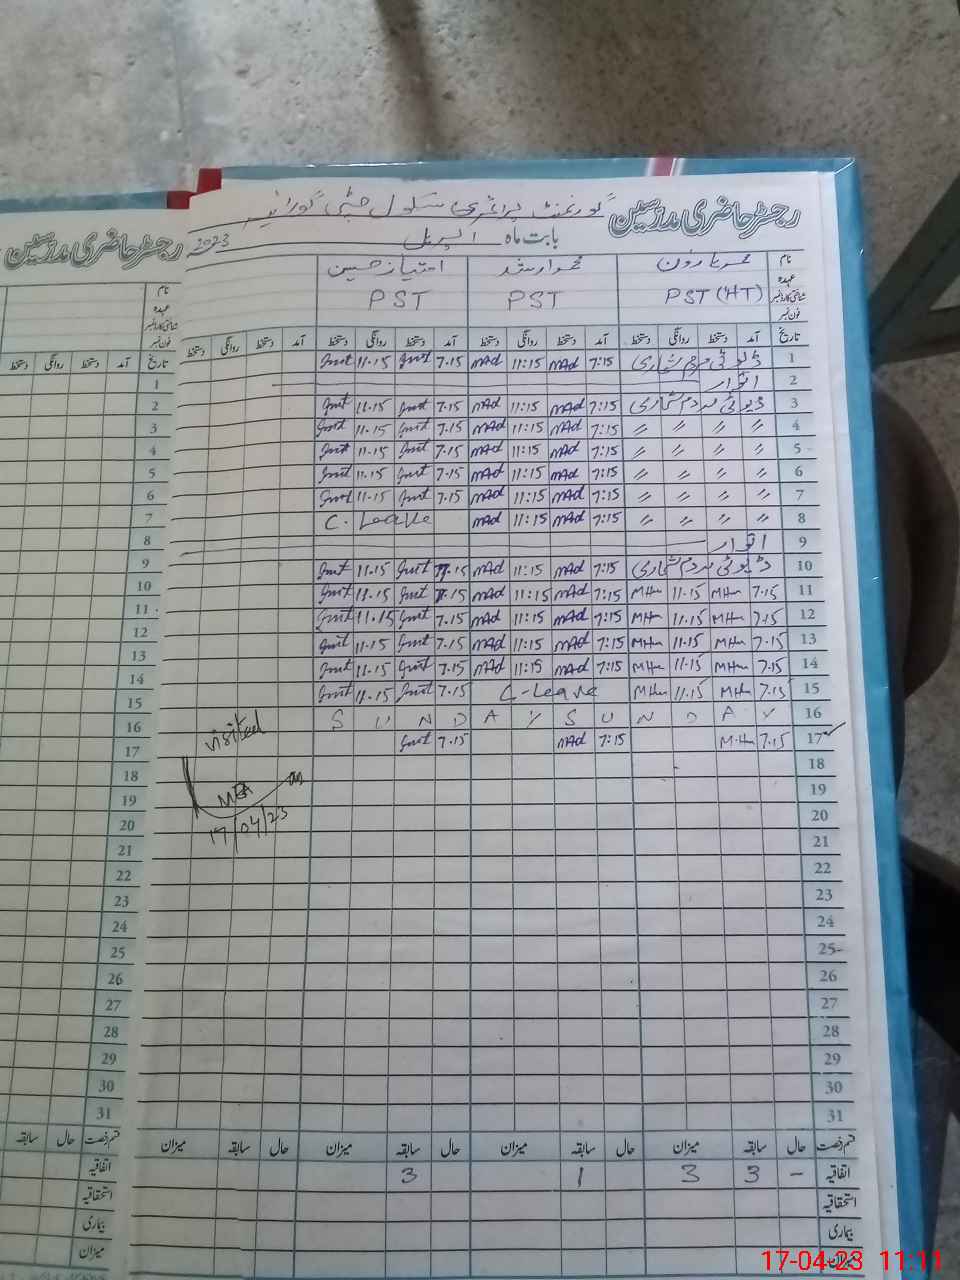 گورنمنٹ پرائمری سکول
رجسٹر حاضری مدرسین
بابت ماہ اپریل 2023
رجسٹر حاضری مدرسین
نام محمد ہارون محمد ارشد امتیاز حسین
عہدہ PST (HT) PST PST
شناختی کارڈ نمبر
فون نمبر
تاریخ آمد دستخط روانگی دستخط آمد دستخط روانگی دستخط آمد دستخط روانگی دستخط آمد دستخط روانگی دستخط
1 ڈیوٹی مردم شماری 7:15 mAd 11:15 mAd 7.15 Jmt 11.15 Jmt
2 اتوار
3 ڈیوٹی مردم شماری 7:15 mAd 11:15 mAd 7.15 Jmt 11.15 Jmt
4 〃 〃 〃 〃 7:15 mAd 11:15 mAd 7.15 Jmt 11.15 Jmt
5 〃 〃 〃 〃 7:15 mAd 11:15 mAd 7.15 Jmt 11.15 Jmt
6 〃 〃 〃 〃 7:15 mAd 11:15 mAd 7.15 Jmt 11.15 Jmt
7 〃 〃 〃 〃 7:15 mAd 11:15 mAd 7.15 Jmt 11.15 Jmt
8 〃 〃 〃 〃 7:15 mAd 11:15 mAd C. Leave
9 اتوار
10 ڈیوٹی مردم شماری 7:15 mAd 11:15 mAd 7.15 Jmt 11.15 Jmt
11 7.15 MHm 11.15 MHm 7:15 mAd 11:15 mAd 7.15 Jmt 11.15 Jmt
12 7.15 MHm 11.15 MHm 7:15 mAd 11:15 mAd 7.15 Jmt 11.15 Jmt
13 7.15 MHm 11.15 MHm 7:15 mAd 11:15 mAd 7.15 Jmt 11.15 Jmt
14 7.15 MHm 11.15 MHm 7:15 mAd 11:15 mAd 7.15 Jmt 11.15 Jmt
15 7.15 MHm 11.15 MHm C-Leave 7.15 Jmt 11.15 Jmt
16 S U N D A Y S U N D A Y
17 7.15 M.Hm 7:15 mAd 7.15 Jmt
18
19
20
21
22
23
24
25
26
27
28
29
30
31
visited
MEA
17/04/23
قسم رخصت حال سابقہ میزان حال سابقہ میزان حال سابقہ میزان حال سابقہ میزان
اتفاقیہ - 3 3 1 3
استحقاقیہ
بیماری
میزان
نام
عہدہ
شناختی کارڈ نمبر
فون نمبر
تاریخ آمد دستخط روانگی دستخط
1
2
3
4
5
6
7
8
9
10
11
12
13
14
15
16
17
18
19
20
21
22
23
24
25
26
27
28
29
30
31
قسم رخصت حال سابقہ
اتفاقیہ
استحقاقیہ
بیماری
میزان
17-04-23 11:11